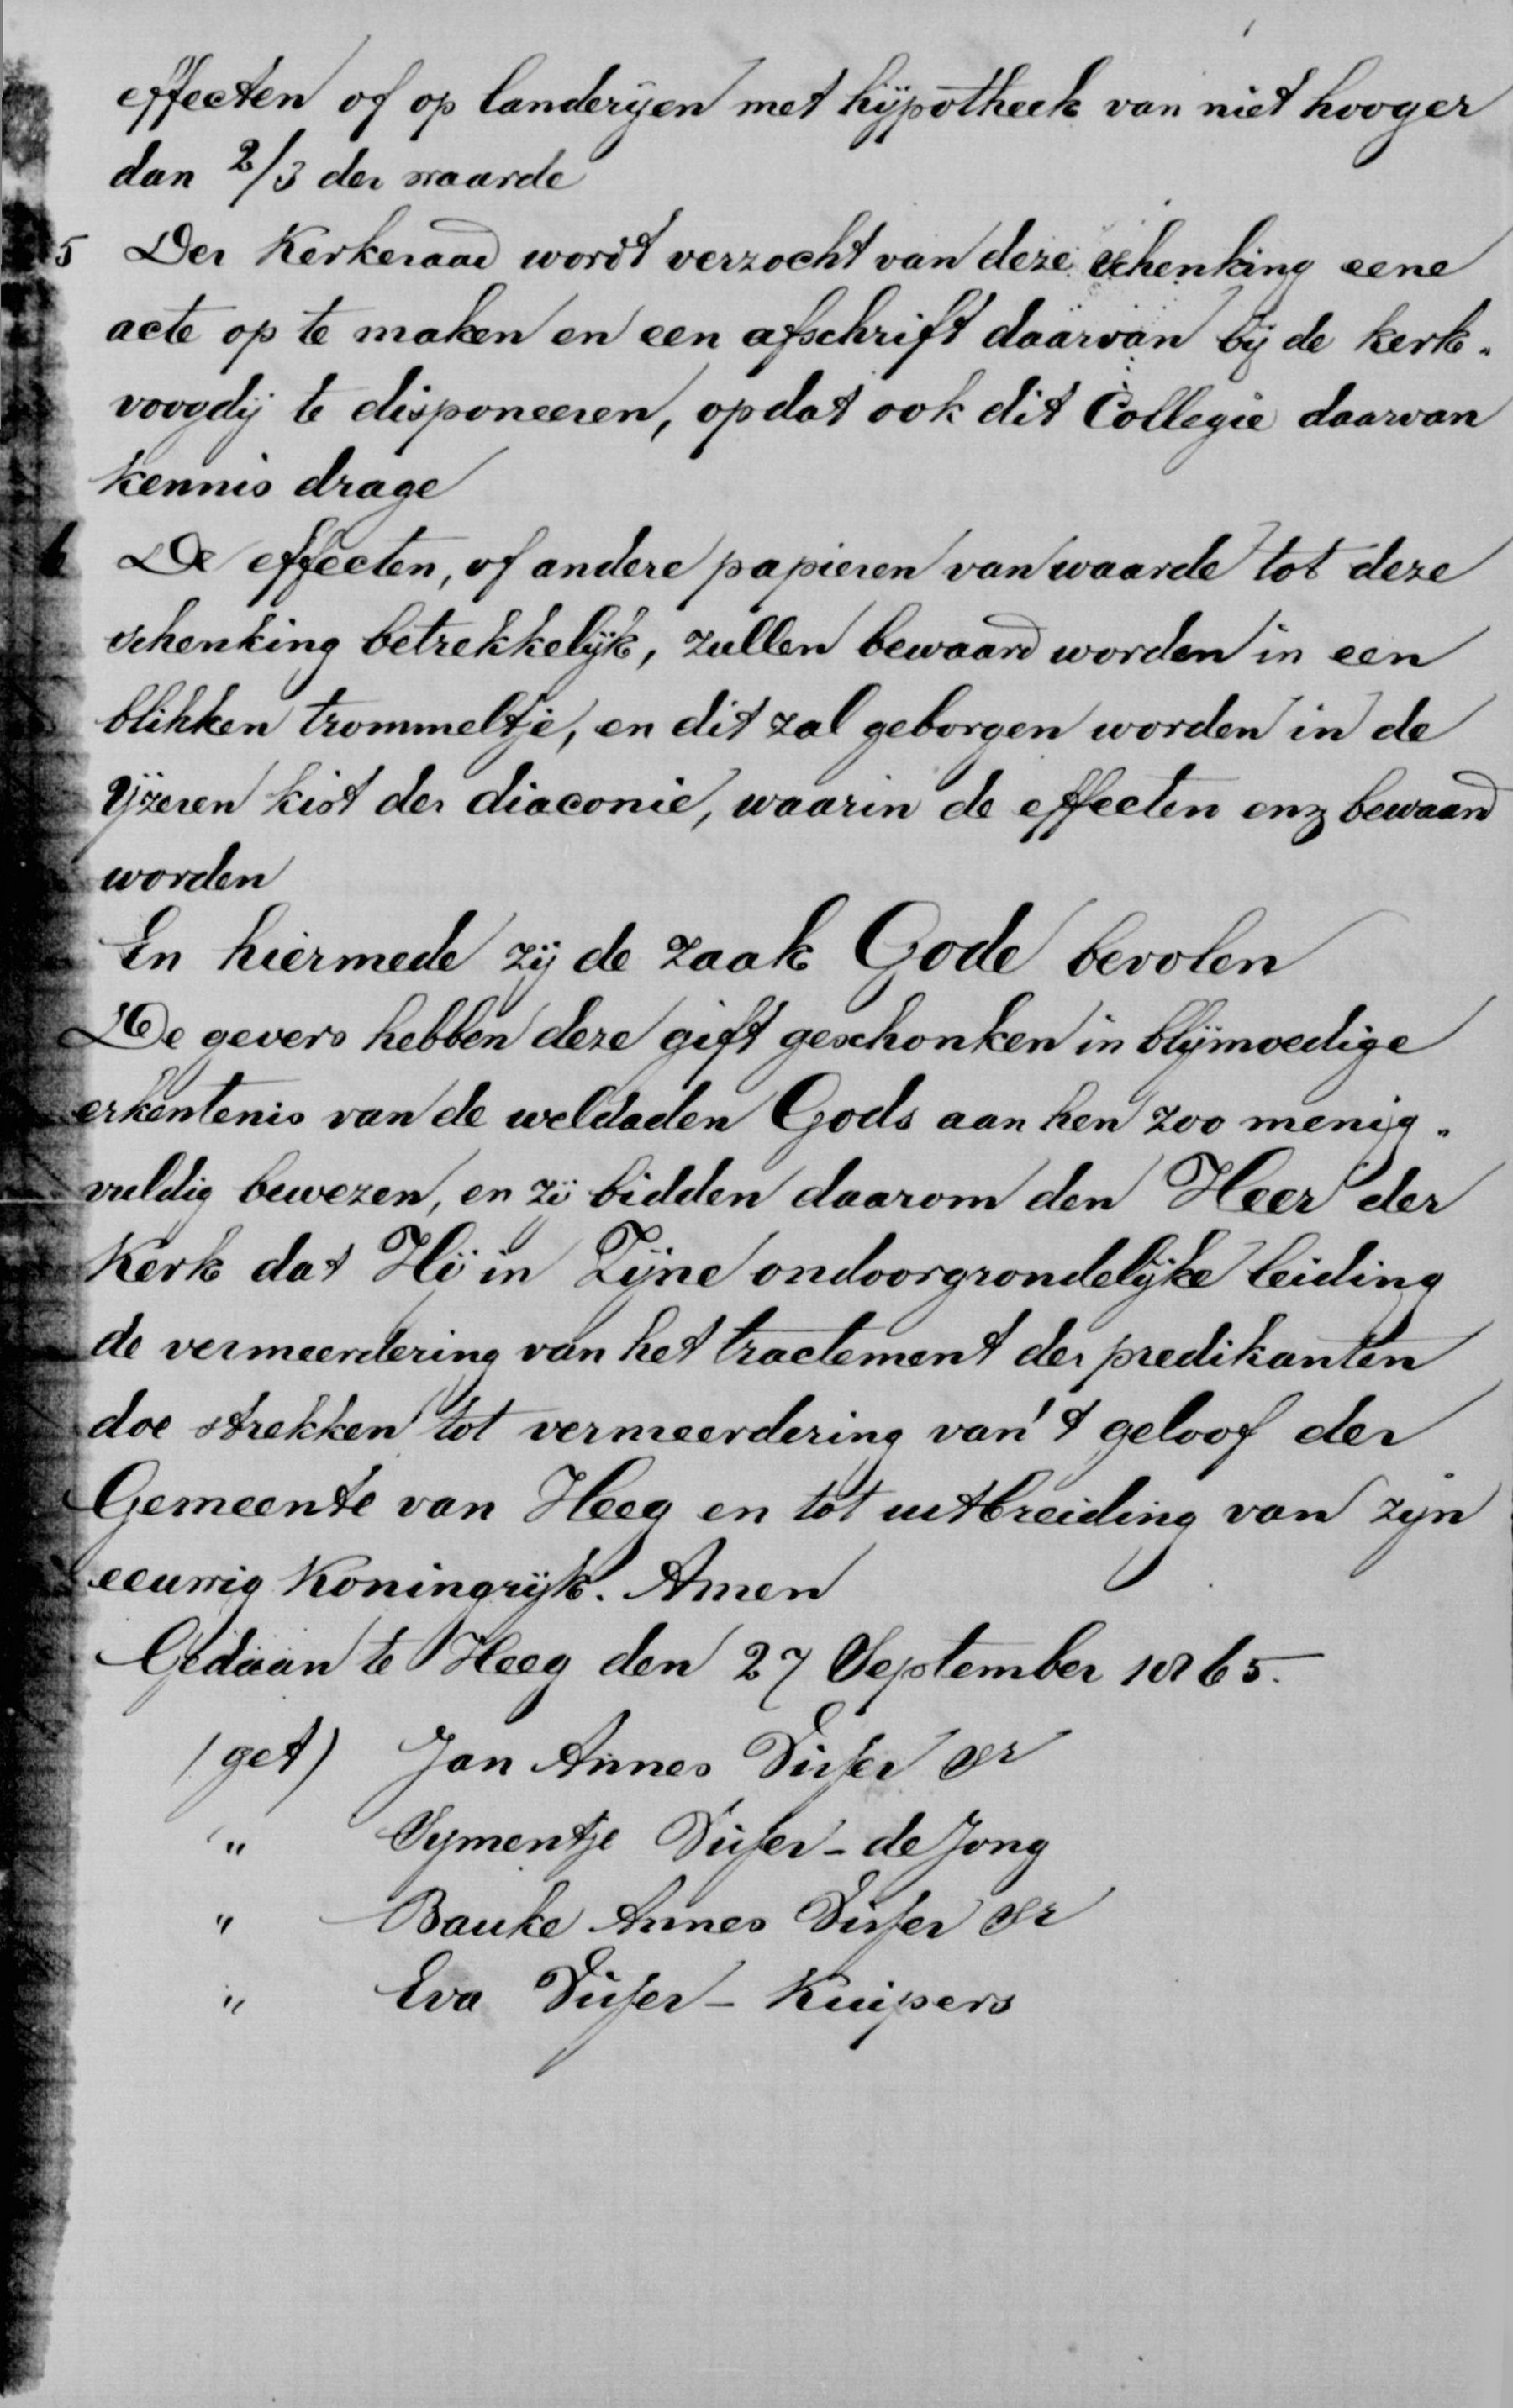 effecten of op landerijen met hijpotheek van niet hooger
dan 2/3 der waarde
5 Der Kerkeraad wordt verzocht van deze schenking eene
acte op te maken en een afschrift daarvan bij de kerk-
voogdij te disponeeren, opdat ook dit Collegie daarvan
kennis drage
6 De effecten, of andere papieren van waarde tot deze
schenking betrekkelijk, zullen bewaard worden in een
blikken trommeltje, en dit zal geborgen worden in de
ijzeren kist der diaconie, waarin de effecten enz bewaard
worden
En hiermede zij de zaak Gode bevolen
De gevers hebben deze gift geschonken in blijmoedige
erkentenis van de weldaden Gods aan hen zoo menig-
vuldig bewezen, en zij bidden daarom den Heer der
Kerk dat Hij in Zijne ondoorgrondelijke leiding
de vermeerdering van het tractement der predikanten
doe strekken tot vermeerdering van 't geloof der
Gemeente van Heeg en tot uitbreiding van zijn
eeuwig Koningrijk. Amen
Gedaan te Heeg den 27 September 1865.
(get) Jan Annes Disser Sr
" Sijmentje Disser - de Jong
" Bauke Annes Disser Sr
" Eva Disser - Kuipers